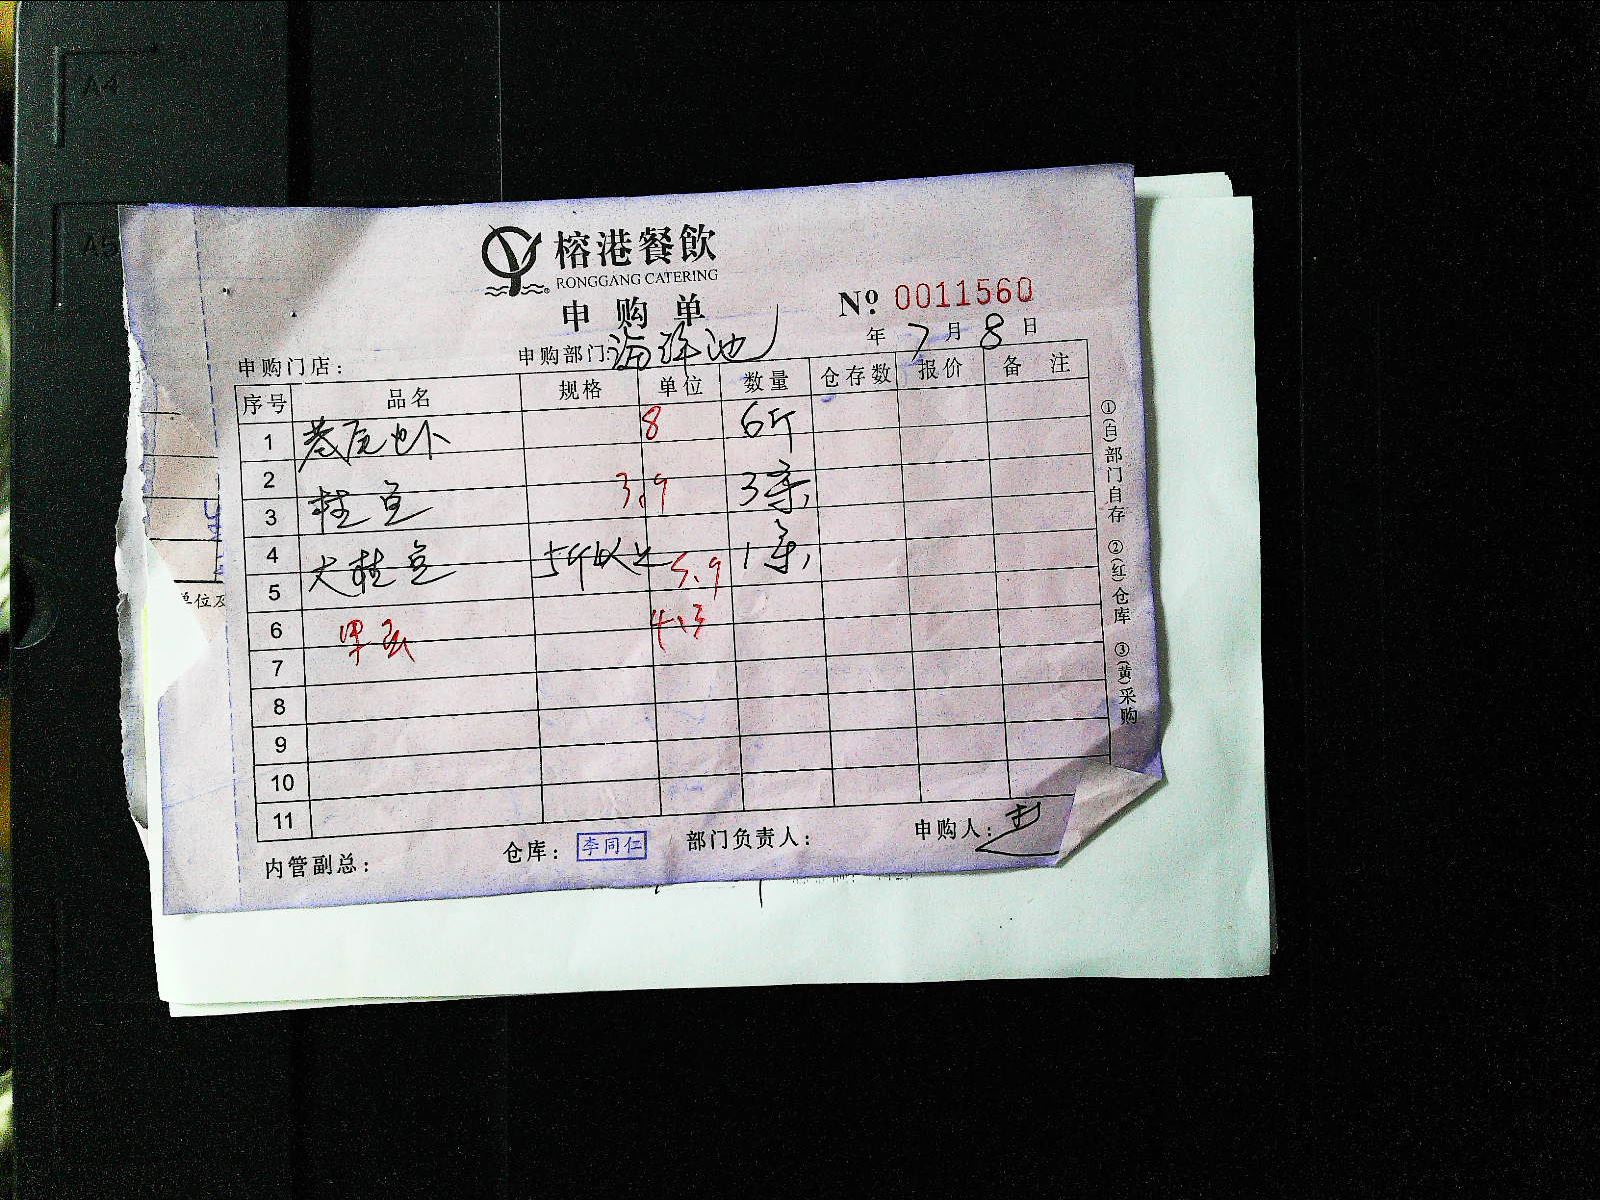 A4
A5
榕港餐飲
RONGGANG CATERING
申购单
№ 0011560
年 7 月 8 日
申购门店： 申购部门：海鲜池
序号 品名 规格 单位 数量 仓存数 报价 备 注
1 基尾虾 8 6斤
2
3 桂鱼 3.9 3条
4
5 大桂鱼 5斤以上 5.9 1条
6 甲鱼 4.3
7
8
9
10
11
内管副总： 仓库： 李同仁 部门负责人： 申购人：
①(白)部门自存 ②(红)仓库 ③(黄)采购
单位及